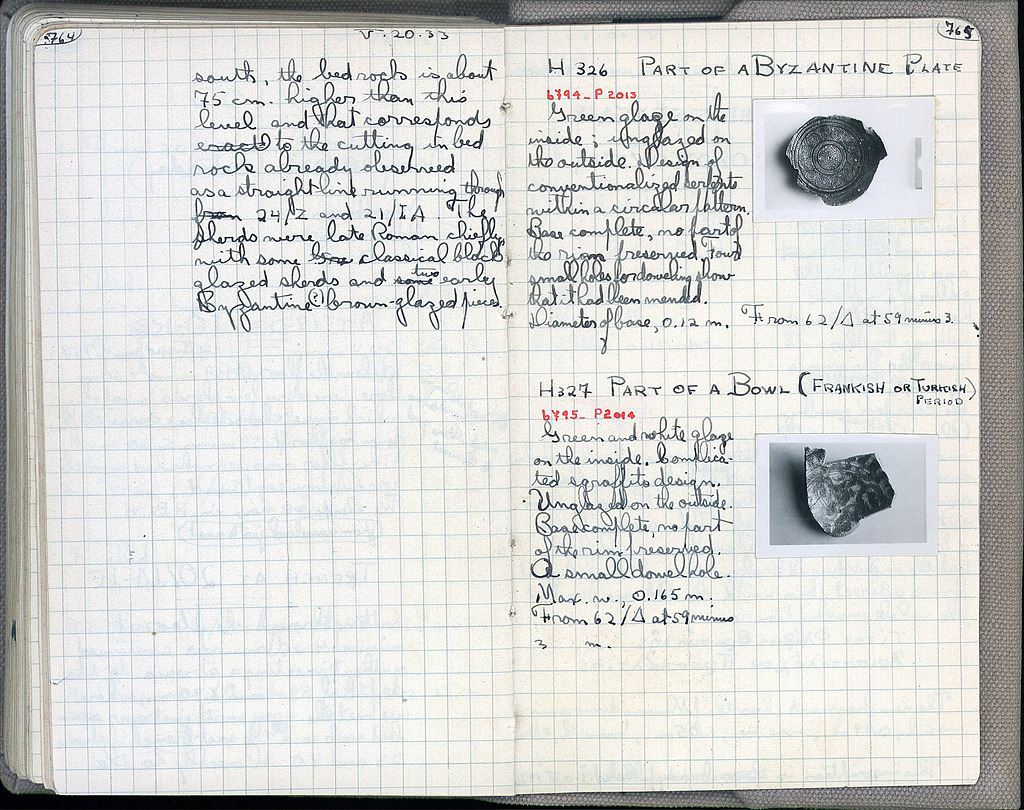 764
V · 20 · 33
south, the bedrock is about
75 cm. higher than this
level and that corresponds
exact to the cutting in bed
rock already observed
as a straight line running through
from 24/Z and 21/IA. The
sherds were late Roman chiefly,
with some classical black
glazed sherds and some two early
Byzantine (?) brown-glazed pieces.
765
H 326 PART OF A BYZANTINE PLATE
6794 - P 2013
Green glaze on the
inside; unglazed on
the outside. Design of
conventionalized serpents
within a circular pattern.
Base complete, no part of
the rim preserved. Four
small holes for doweling show
that it had been mended.
Diameter of base, 0.12 m. From 62/Δ at 59 minus 3.
H327 PART OF A BOWL (FRANKISH OR TURKISH)
PERIOD
6795 - P2014
Green and white glaze
on the inside. Complica-
ted sgraffito design.
Unglazed on the outside.
Base complete, no part
of the rim preserved.
A small dowel hole.
Max. w., 0.165 m.
From 62/Δ at 59 minus
3 m.